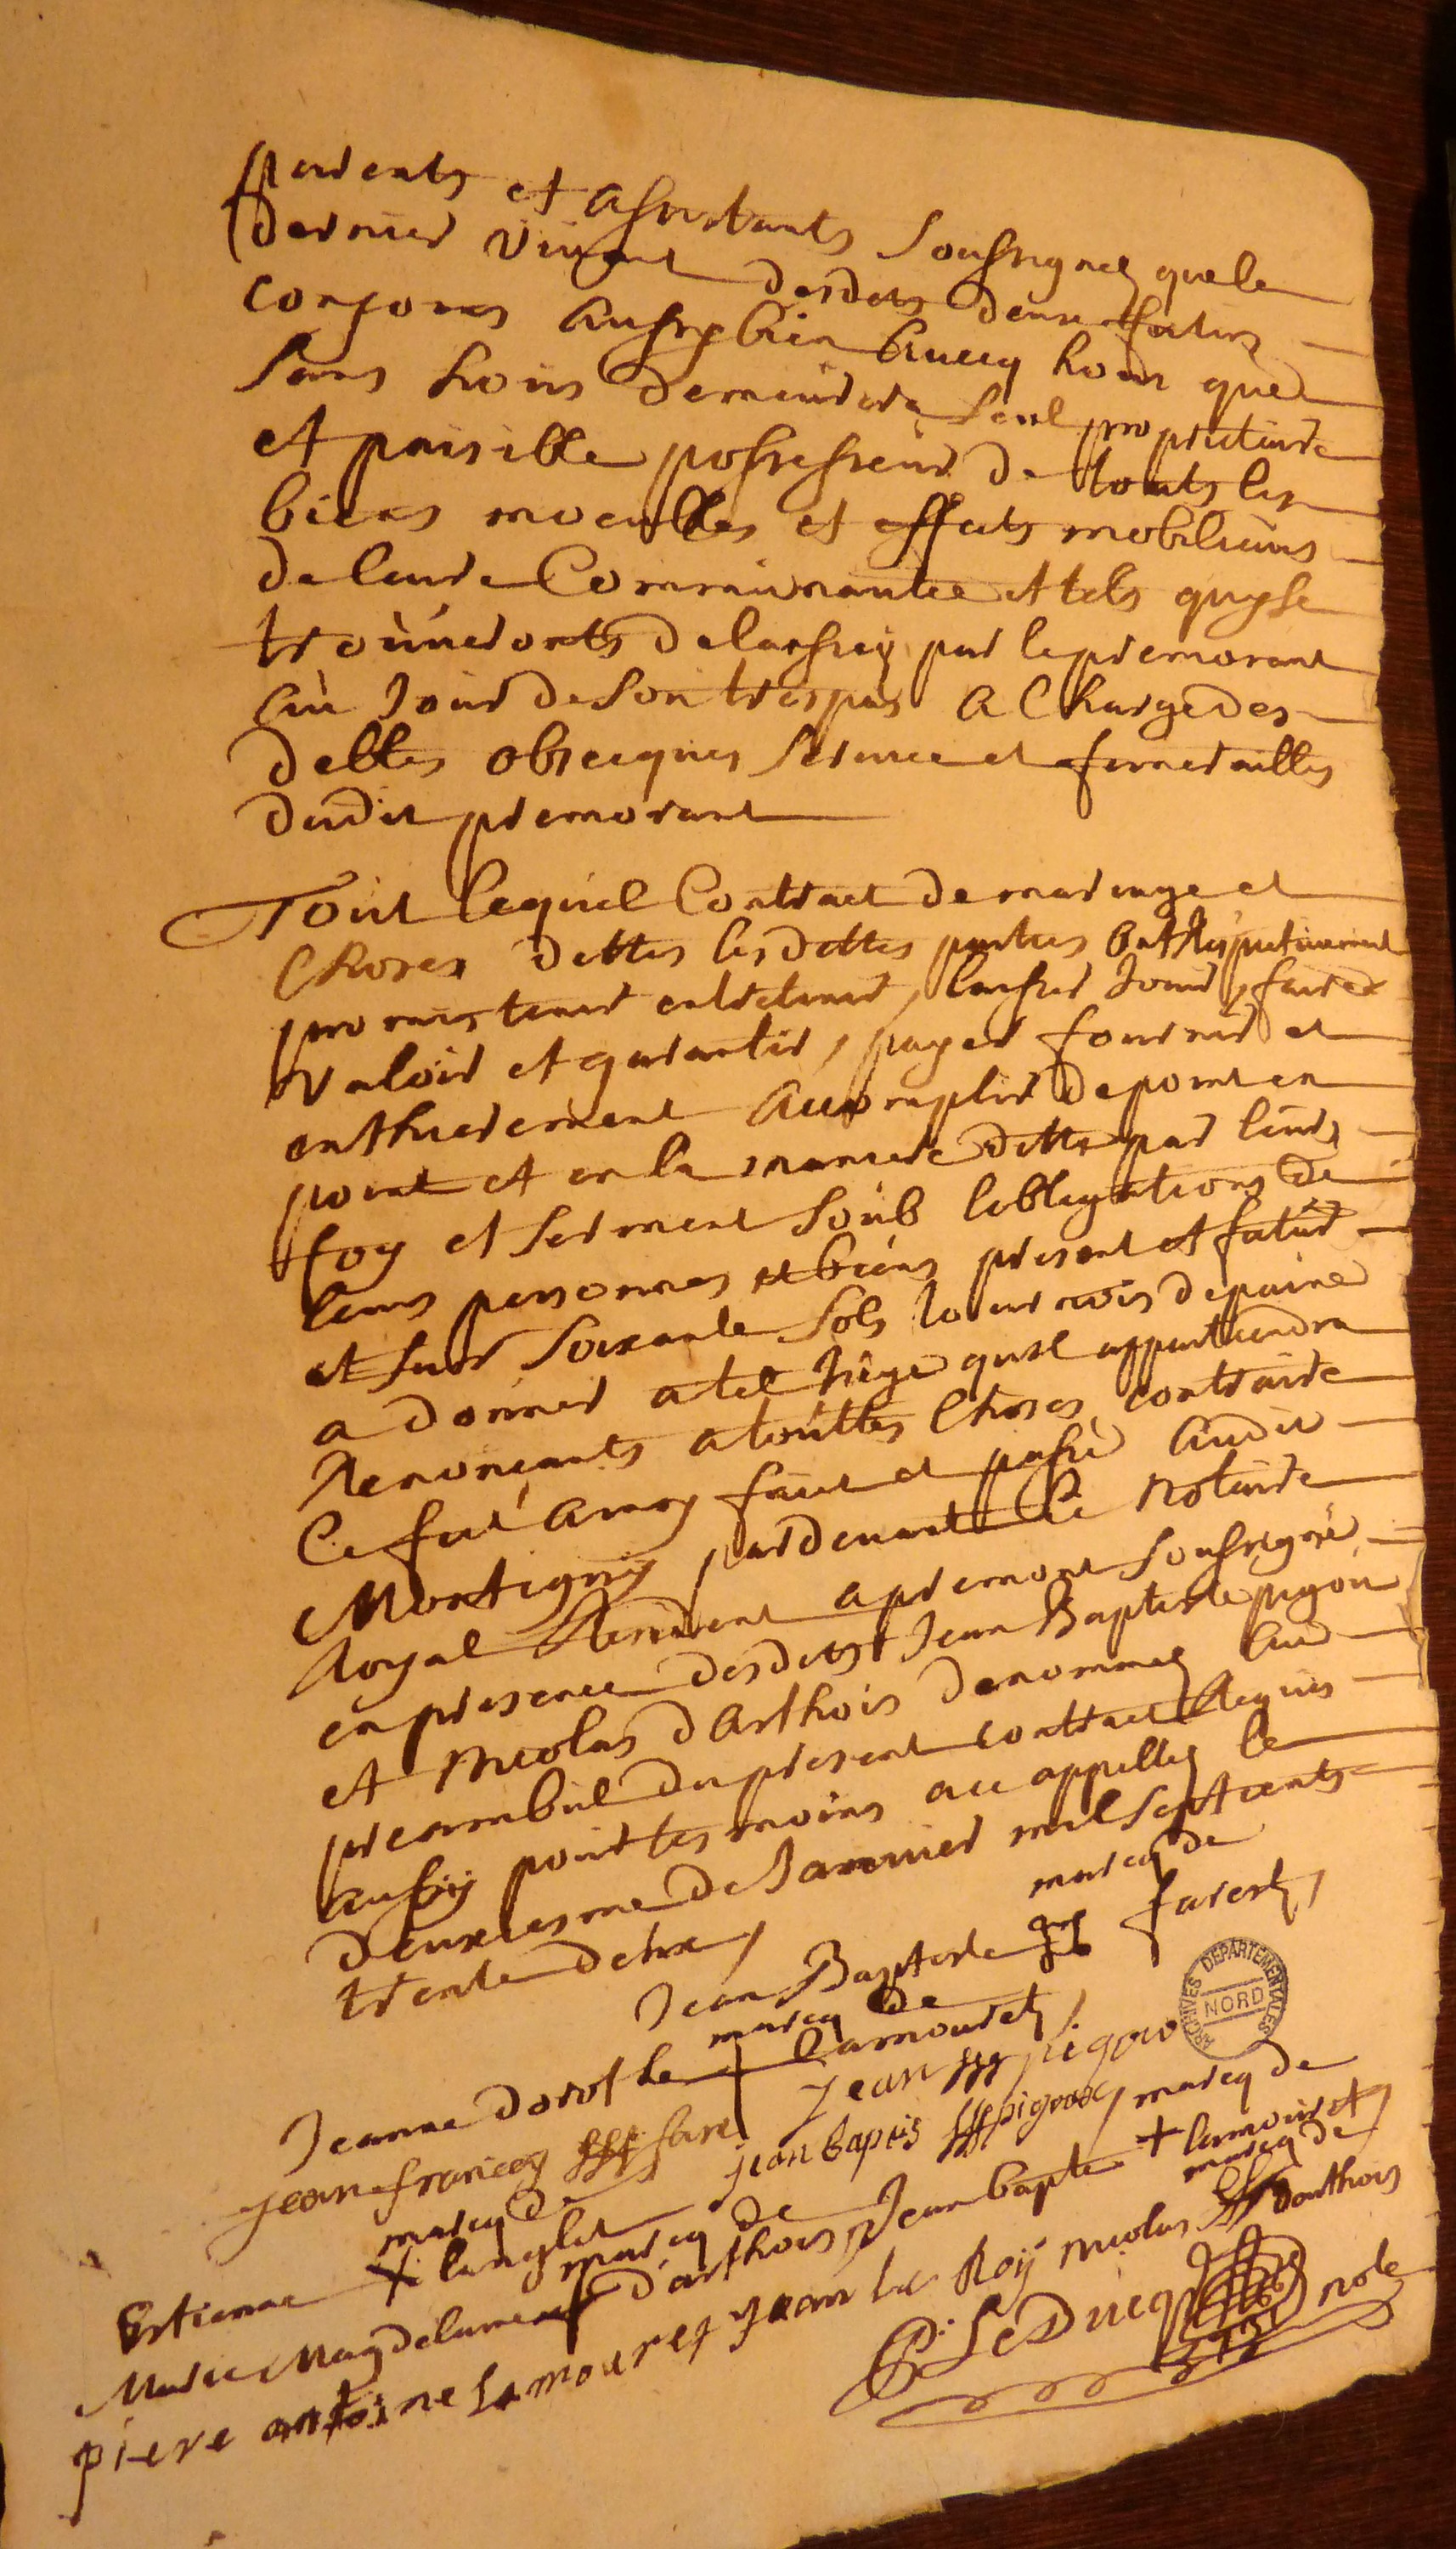 parents et assistants soussignez que le
dernier vivant desdits deux futurs
conjoincs aussy bien avecq hoirs que
sans hoirs demeurera seul proprietaire
et paisible possesseur de touts les
biens meubles et effects mobiliairs
de leure Communautee et tels quy se
trouveronts delaissez par le premorant
au Jour de son trespas a Charge des
debtes obsecques service et funerailles
dudit premorant
Tout lequel Contract de mariage et
Choses dittes lesdittes parties ont respectivement
promis tenir entretenir, laisser Jouir, faire
valoir et garantir, payer fournir et
enthierement accomplir de point en
point et en la maniere ditte par leurs
foy et serment soub lobligations de
leurs personnes et biens present et futur
et sur soixante sols tournois de paine
a donner a tel Juge quil appartiendra
Renonçants a touttes Choses contraire
Ce fut ainsy fait et passé audit
Montigny pardevant le Notaire
Royal Resident a premont soussigné
en presence desdits Jean Baptiste pigou
et Nicolas d'Arthois denommez au
preambul du present contract Requis
aussy pour tesmoins ace appellez le
deuxiesme de Janvier mil sept cents
trente deux,
marcq de
Jean Baptiste farez,
marcq de
Jeanne dorothe + Lamourez,
Jean pigou
jean francoy fare
jean bapeis pigou,
marcq de
Estienne X langlet
marcq de
Jean bapte + lamouret,
marcq de
Marie Magdelaine d'arthois,
marcq de
Nicolas darthois
piere antoine Lamourez Jean Le Roÿ
P: Le Ducq notre
1732
ARCHIVES DEPARTEMENTALES
NORD